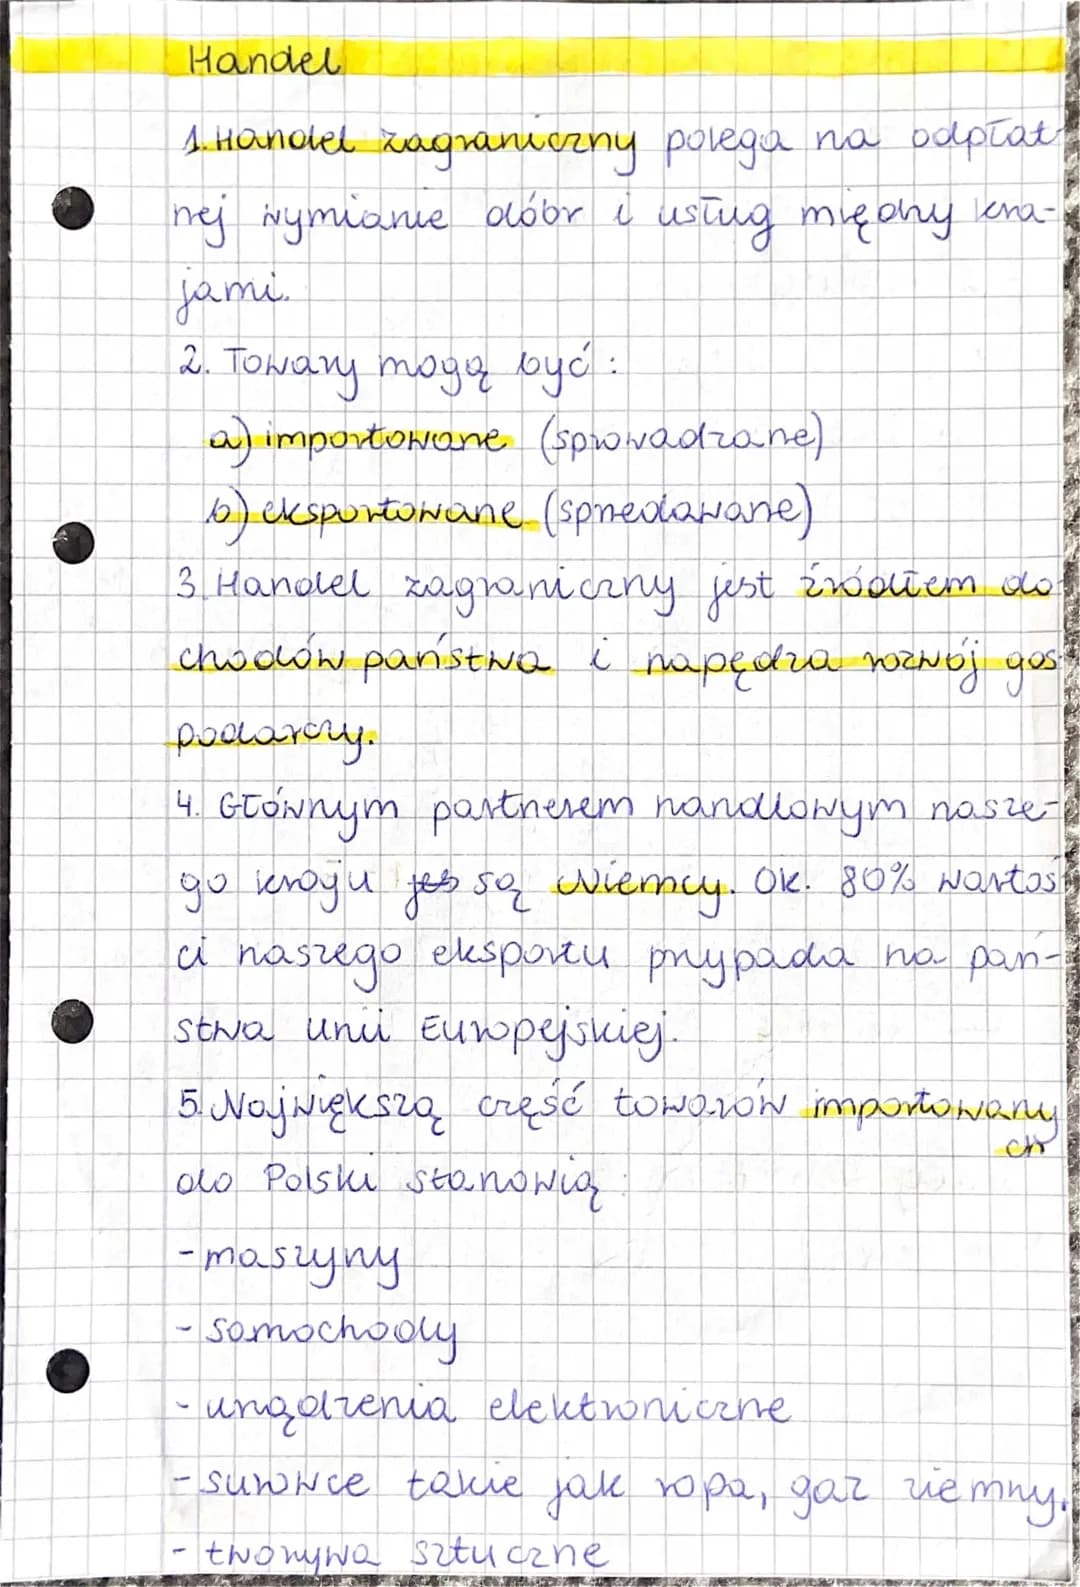 Handel
1. Handel zagraniczny polega na odpłat
nej wymianie dóbr i usług między kra-
jami.
2. Towary mogą być :
a) importowane (sprowadzane)
b) eksportowane (sprzedawane)
3. Handel zagraniczny jest źródłem do
chodów państwa i napędza rozwój gos
podarczy.
4. Głównym partnerem handlowym nasze-
go kraju są Niemcy. Ok. 80% wartoś
ci naszego eksportu przypada na pań-
stwa Unii Europejskiej.
5. Największą część towarów importowany
ch
do Polski stanowią :
- maszyny
- samochody
- urządzenia elektroniczne
- surowce takie jak ropa, gaz ziemny.
- tworzywa sztuczne